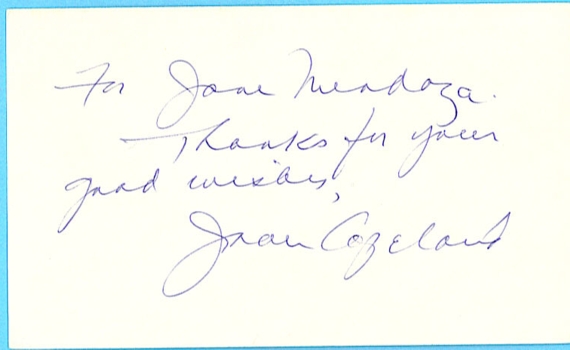 For Jane Mendoza.
Thanks for your
good wishes,
Joan Copeland